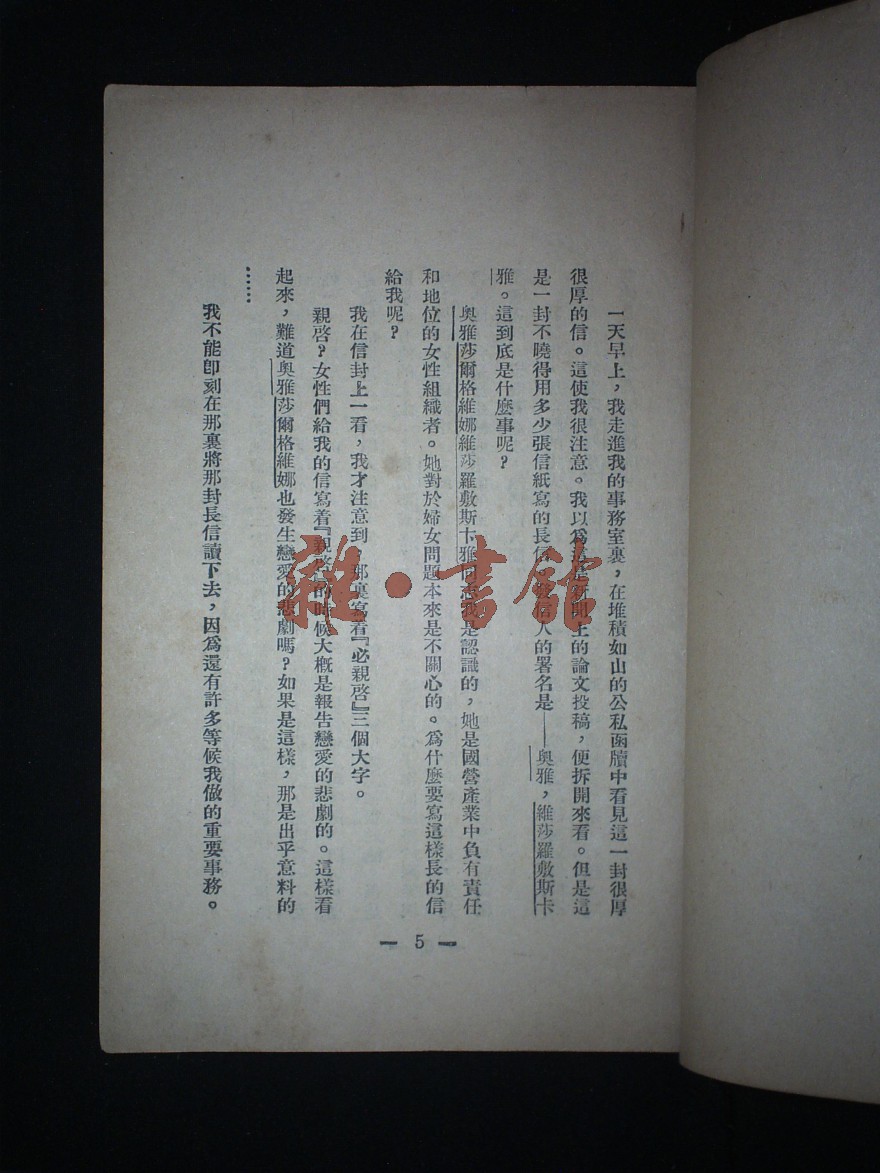 一天早上，我走進我的事務室裏，在堆積如山的公私函牘中看見這一封很厚
很厚的信。這使我很注意。我以爲這是新聞上的論文投稿，便拆開來看。但是這
是一封不曉得用多少張信紙寫的長信，發信人的署名是——奥雅，維莎羅敷斯卡
雅。這到底是什麼事呢？
奥雅莎爾格維娜維莎羅敷斯卡雅同志我是認識的，她是國營產業中負有責任
和地位的女性組織者。她對於婦女問題本來是不關心的。爲什麼要寫這樣長的信
給我呢？
我在信封上一看，我才注意到，那裏寫着『必親啓』三個大字。
親啓？女性們給我的信寫着『親啓』的時候大概是報告戀愛的悲劇的。這樣看
起來，難道奥雅莎爾格維娜也發生戀愛的悲劇嗎？如果是這樣，那是出乎意料的
……
我不能卽刻在那裏將那封長信讀下去，因爲還有許多等候我做的重要事務。
— 5 —
雜·書館